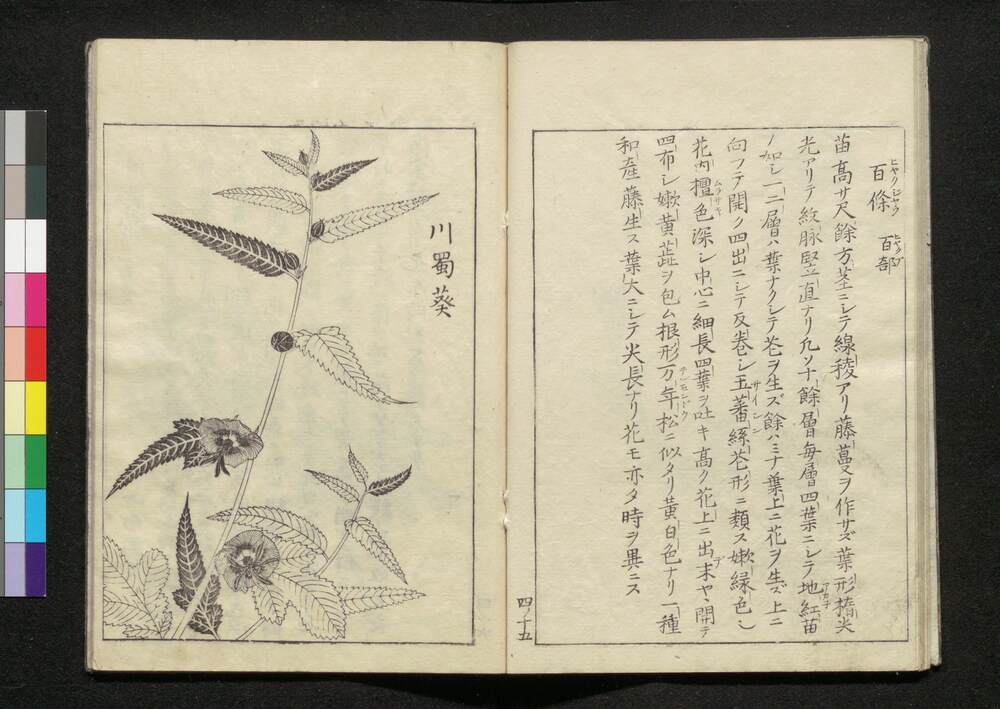 百條 百部
苗高サ尺餘方茎ニシテ線稜アリ藤蔓ヲ作サズ葉形橢尖
光アリテ紋脉竪直ナリ凢ソ十餘層毎層四葉ニシテ地紅苗
ノ如シ一二層ハ葉ナクシテ花ヲ生ズ餘ハミナ葉上ニ花ヲ生ズ上ニ
向フテ開ク四出ニシテ反巻シ玉蕃絲花形ニ類ス嫩緑色
花内檀色深シ中心ニ細長四葉ヲ吐キ高ク花上ニ出末ヤヽ開テ
四布シ嫩黄蕋ヲ包ム根形万年松ニ似タリ黄白色ナリ一種
和産藤生ス葉大ニシテ尖長ナリ花モ亦タ時ヲ異ニス
四ノ十五
川蜀葵